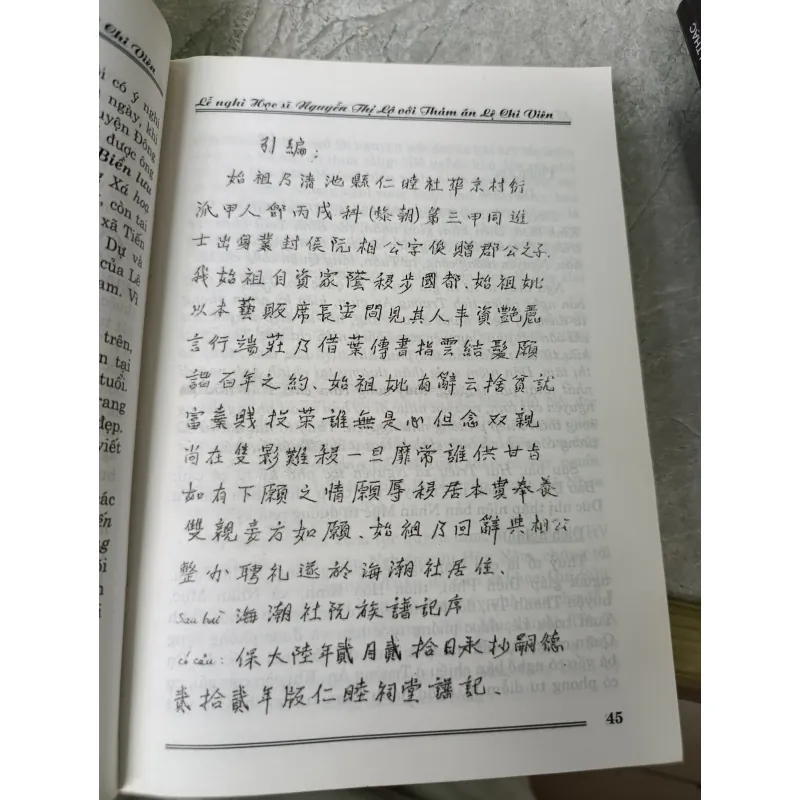 Chi Viên
bi có ý nghị
ngày, khi
uyện Đông
được ông
Biển lưu
Xá học
, còn tai
xã Tiến
Dự và
của Lê
am. Vì
trên,
ên tại
tuổi.
rang
đẹp.
viết
các
ến
ng
ói
ên
i
Lễ nghi Học sĩ Nguyễn Thị Lộ với Thảm án Lệ Chi Viên
引編:
始祖乃清池縣仁睦社華京村衍
派甲人鄧丙戌科(黎朝)第三甲同進
士出身業封侯阮相公字俊贈郡公之子.
我始祖自資家蔭移步國都、始祖妣
以本藝販席長安間見其人丰資艷麗
言行端莊乃借葉傳書指雲結髮願
諧百年之約、始祖妣有辭云捨貧就
富棄賤投荣誰無是心但念双親
尚在隻影難移一旦靡常誰供甘旨
如有下願之情願辱移居本貫奉養
雙親妾方如願、始祖乃回辭與相公
整小聘礼遂於海潮社居住.
Sau bài 海潮社阮族譜記序
có câu: 保大陸年貳月貳拾日承抄嗣德
貳拾貳年版仁睦祠堂譜記.
45